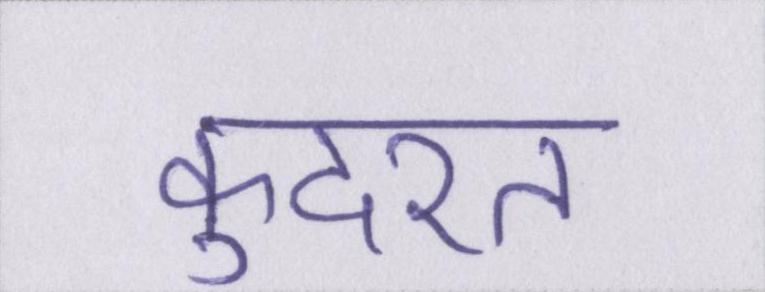 कुदरत